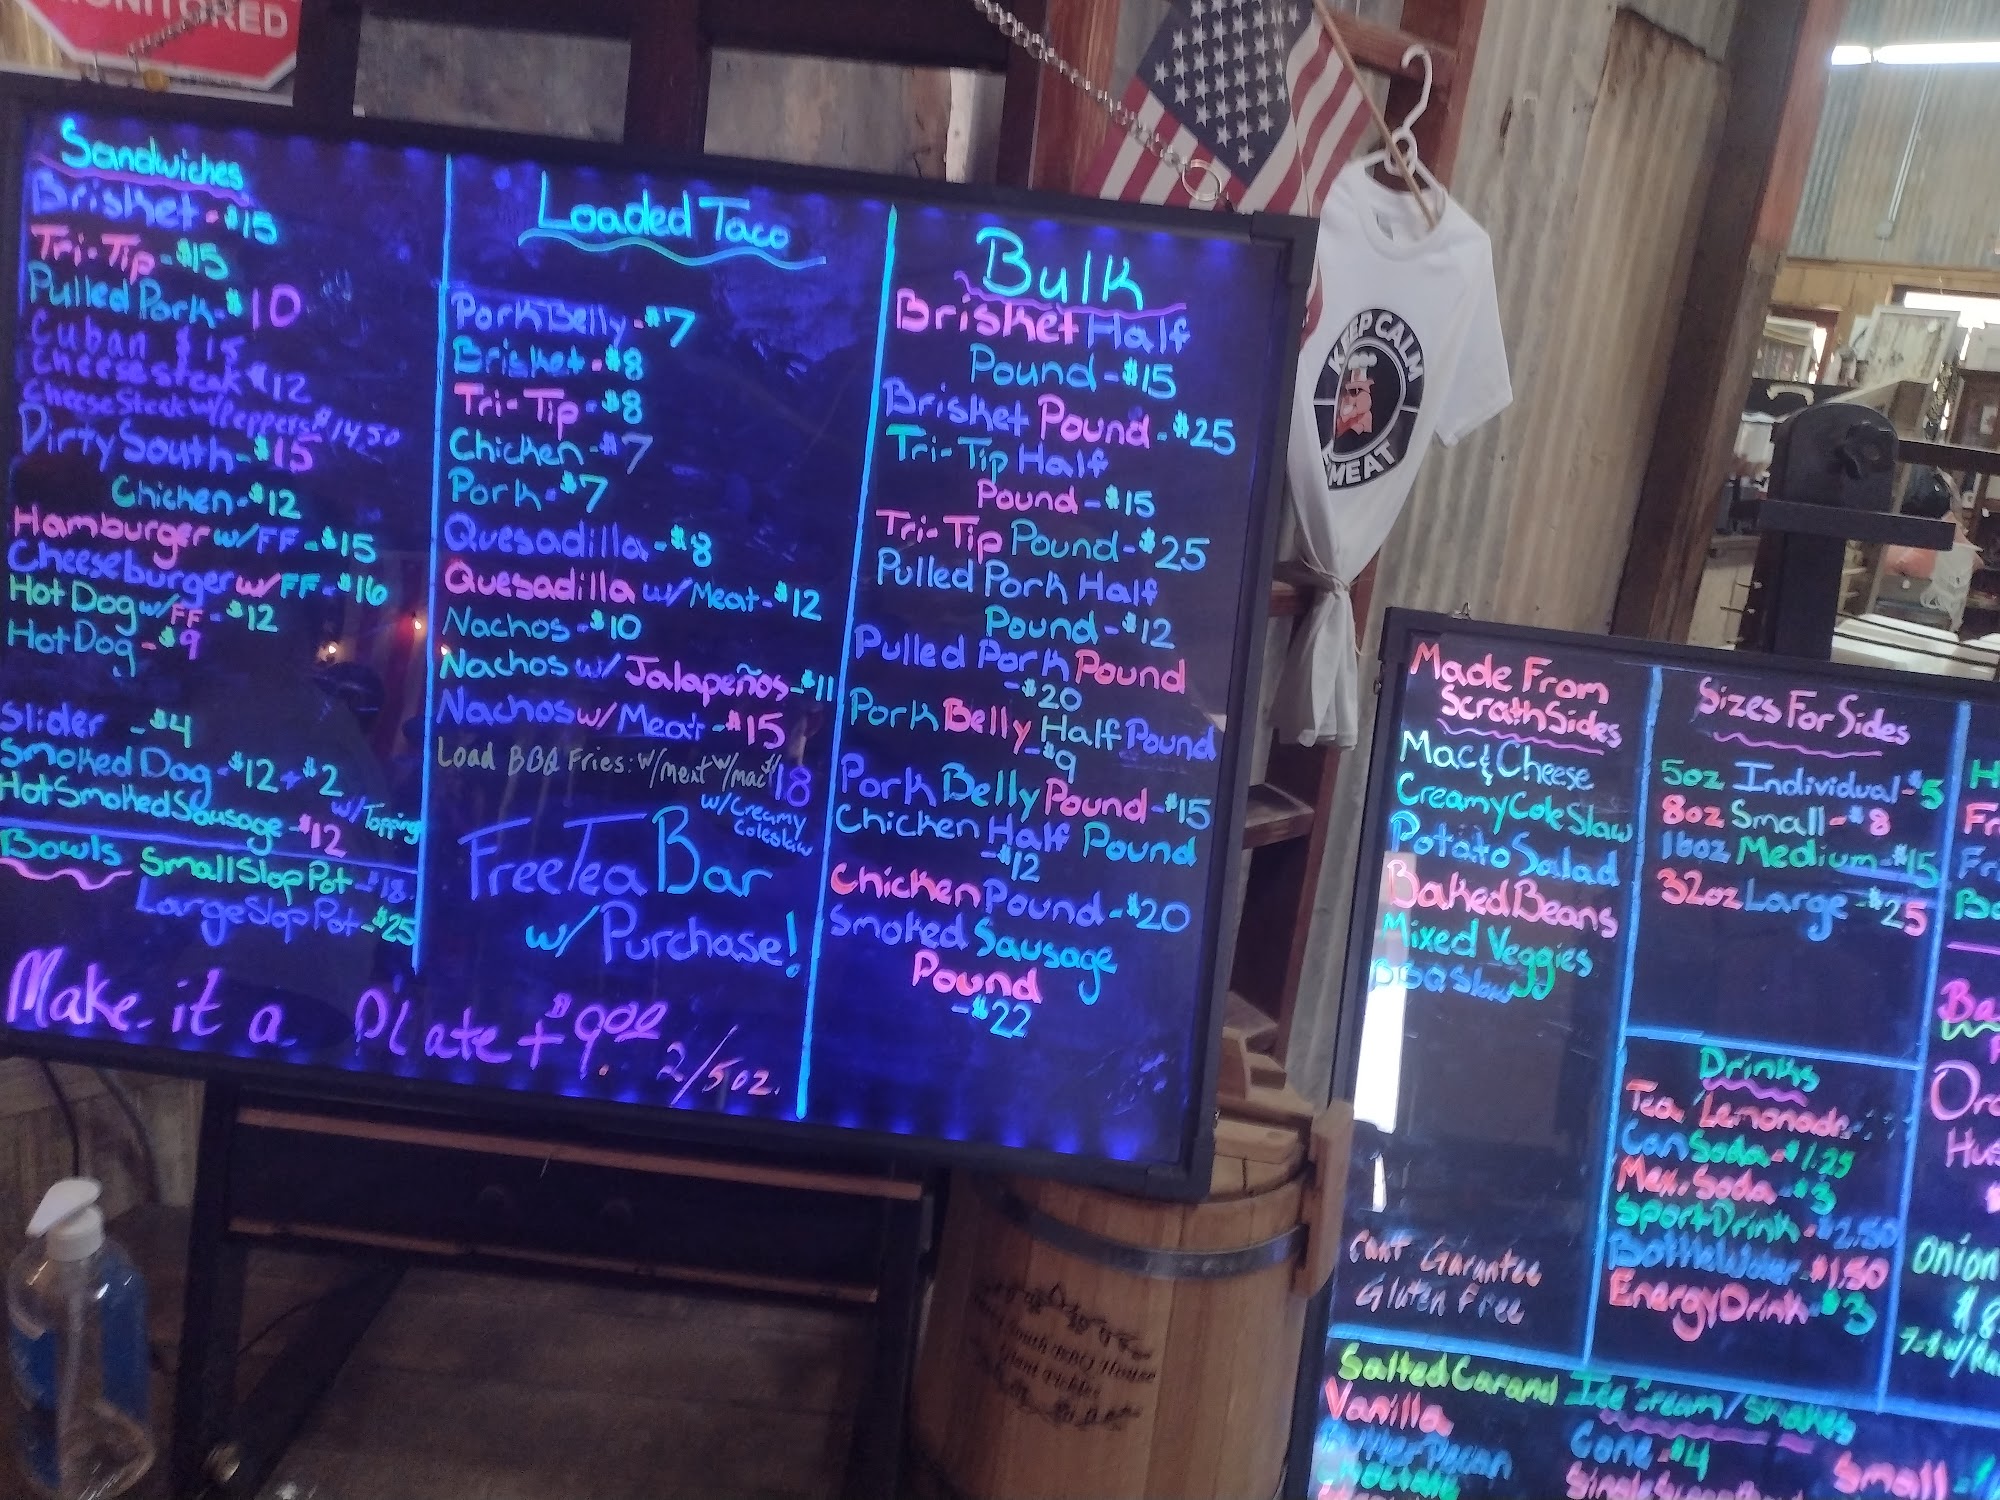 NITORED
Sandwiches
Brisket - $15
Tri-Tip - $15
Pulled Pork - $10
Cuban $15
Cheesesteak $12
Cheese Steak w/Peppers $14.50
Dirty South - $15
Chicken - $12
Hamburger w/FF - $15
Cheeseburger w/FF - $16
Hot Dog w/FF - $12
Hot Dog - $9
Slider - $4
Smoked Dog - $12 + $2
w/Topping
Hot Smoked Sausage - $12
Bowls Small Slop Pot - $18
Large Slop Pot - $25
Make it a Plate + $9.00 2/5oz.
Loaded Taco
Pork Belly - $7
Brisket - $8
Tri-Tip - $8
Chicken - $7
Pork - $7
Quesadilla - $8
Quesadilla w/Meat - $12
Nachos - $10
Nachos w/Jalapeños - $11
Nachos w/Meat - $15
Load BBQ Fries: w/meat w/mac $18
w/Creamy
Coleslaw
Free Tea Bar
w/ Purchase!
Bulk
Brisket Half
Pound - $15
Brisket Pound - $25
Tri-Tip Half
Pound - $15
Tri-Tip Pound - $25
Pulled Pork Half
Pound - $12
Pulled Pork Pound
- $20
Pork Belly Half Pound
- $9
Pork Belly Pound - $15
Chicken Half Pound
- $12
Chicken Pound - $20
Smoked Sausage
Pound
- $22
KEEP CALM
MEAT
Made From
Scrath Sides
Mac & Cheese
Creamy Cole Slaw
Potato Salad
Baked Beans
Mixed Veggies
BBQ Slaw
Can't Garantee
Gluten Free
Sizes For Sides
5oz Individual - $5
8oz Small - $8
16oz Medium - $15
32oz Large - $25
Drinks
Tea Lemonade
Can Soda - $1.25
Mex. Soda - $3
Sport Drink - $2.50
Bottle Water - $1.50
Energy Drink - $3
Onion
Salted Caramel Ice Cream/Shakes
Vanilla
Butter Pecan
Chocolate
Cone - $4
Small
BBQ House